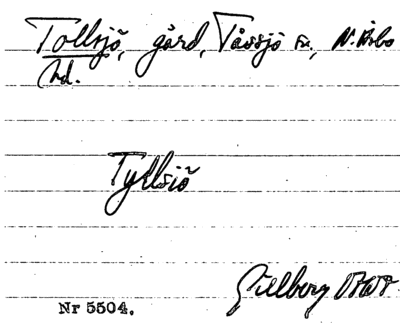 Tollsjö, gård, Tåssjö sn., N. Åsbo
hd.
Tyllsiö
Gillberg
Nr 5504.